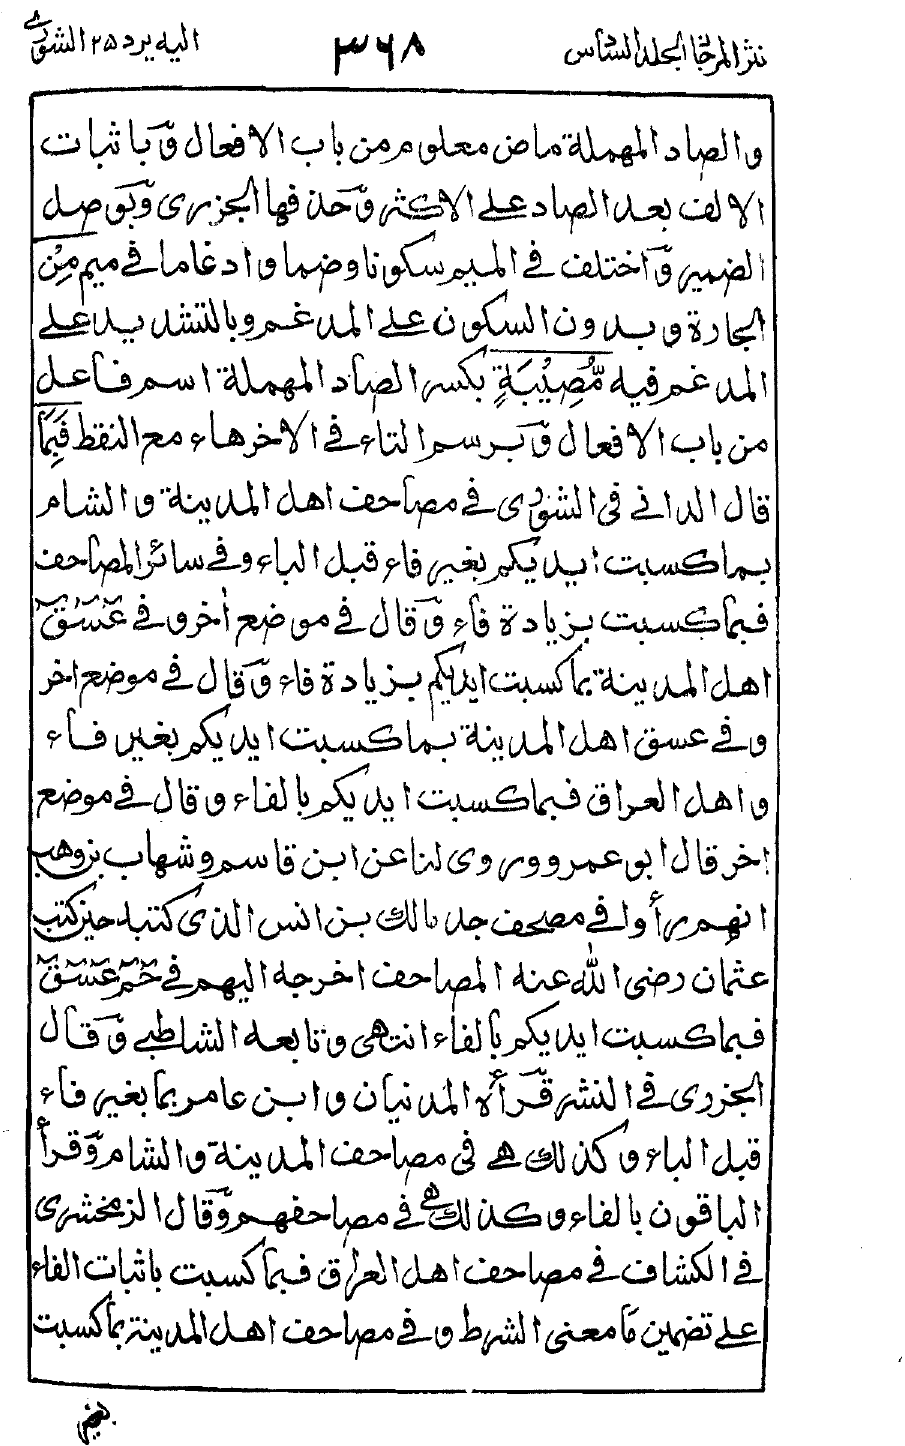 نثر المرجان الجلد السادس ٣٦٨ اليه يرد ٢٥ الشورى
والصاد المهملة ماض معلوم من باب الافعال وَباثبات
الالف بعد الصاد على الاكثر وَحذفها الجزرى وَبوصل
الضمير وَاختلف فى الميم سكونا وضما وادغاما فى ميم مِنْ
الجارة وبدون السكون على المدغم وبالتشديد على
المدغم فيه مُّصِيْبَةٍ بكسر الصاد المهملة اسم فاعل
من باب الافعال وَبرسم التاء فى الاخر هاء مع النقط فَبِمَا
قال الدانى فى الشورى فى مصاحف اهل المدينة والشام
بما كسبت ايديكم بغير فاء قبل الباء وفى سائر المصاحف
فبما كسبت بزيادة فاء وَقال فى موضع اخر وفى عٓسٓقٓ
اهل المدينة بما كسبت ايديكم بزيادة فاء وَقال فى موضع اخر
وفى عسق اهل المدينة بما كسبت ايديكم بغير فاء
واهل العراق فبما كسبت ايديكم بالفاء وقال فى موضع
اخر قال ابو عمرو وروى لنا عن ابن قاسم وشهاب بن وهب
انهم رأوا فى مصحف جد مالك بن انس الذى كتبه حين كتب
عثمان رضى الله عنه المصاحف اخرجه اليهم فى حٓمٓ عٓسٓقٓ
فبما كسبت ايديكم بالفاء انتهى وتابعه الشاطبى وَقال
الجزرى فى النشر قرأه المدنيان وابن عامر بما بغير فاء
قبل الباء وكذلك هى فى مصاحف المدينة والشام وَقرأ
الباقون بالفاء وكذلك هى فى مصاحفهم وَقال الزمخشرى
فى الكشاف فى مصاحف اهل العراق فبما كسبت باثبات الفاء
على تضمين ما معنى الشرط وفى مصاحف اهل المدينة بما كسبت
بغير